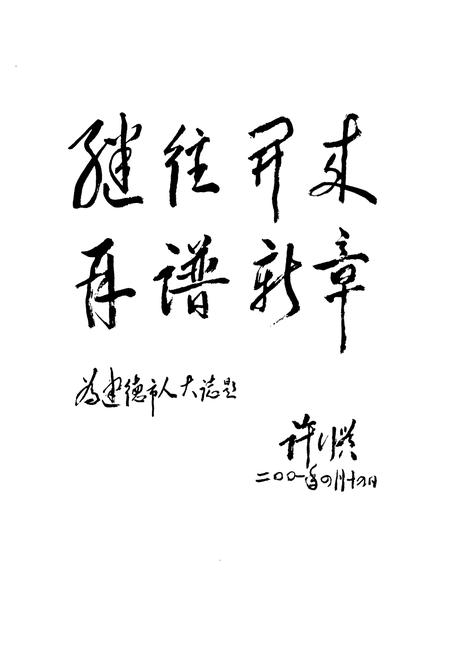 继往开来
再谱新章
為建德市人大誌题
许
二〇〇一年四月十四日